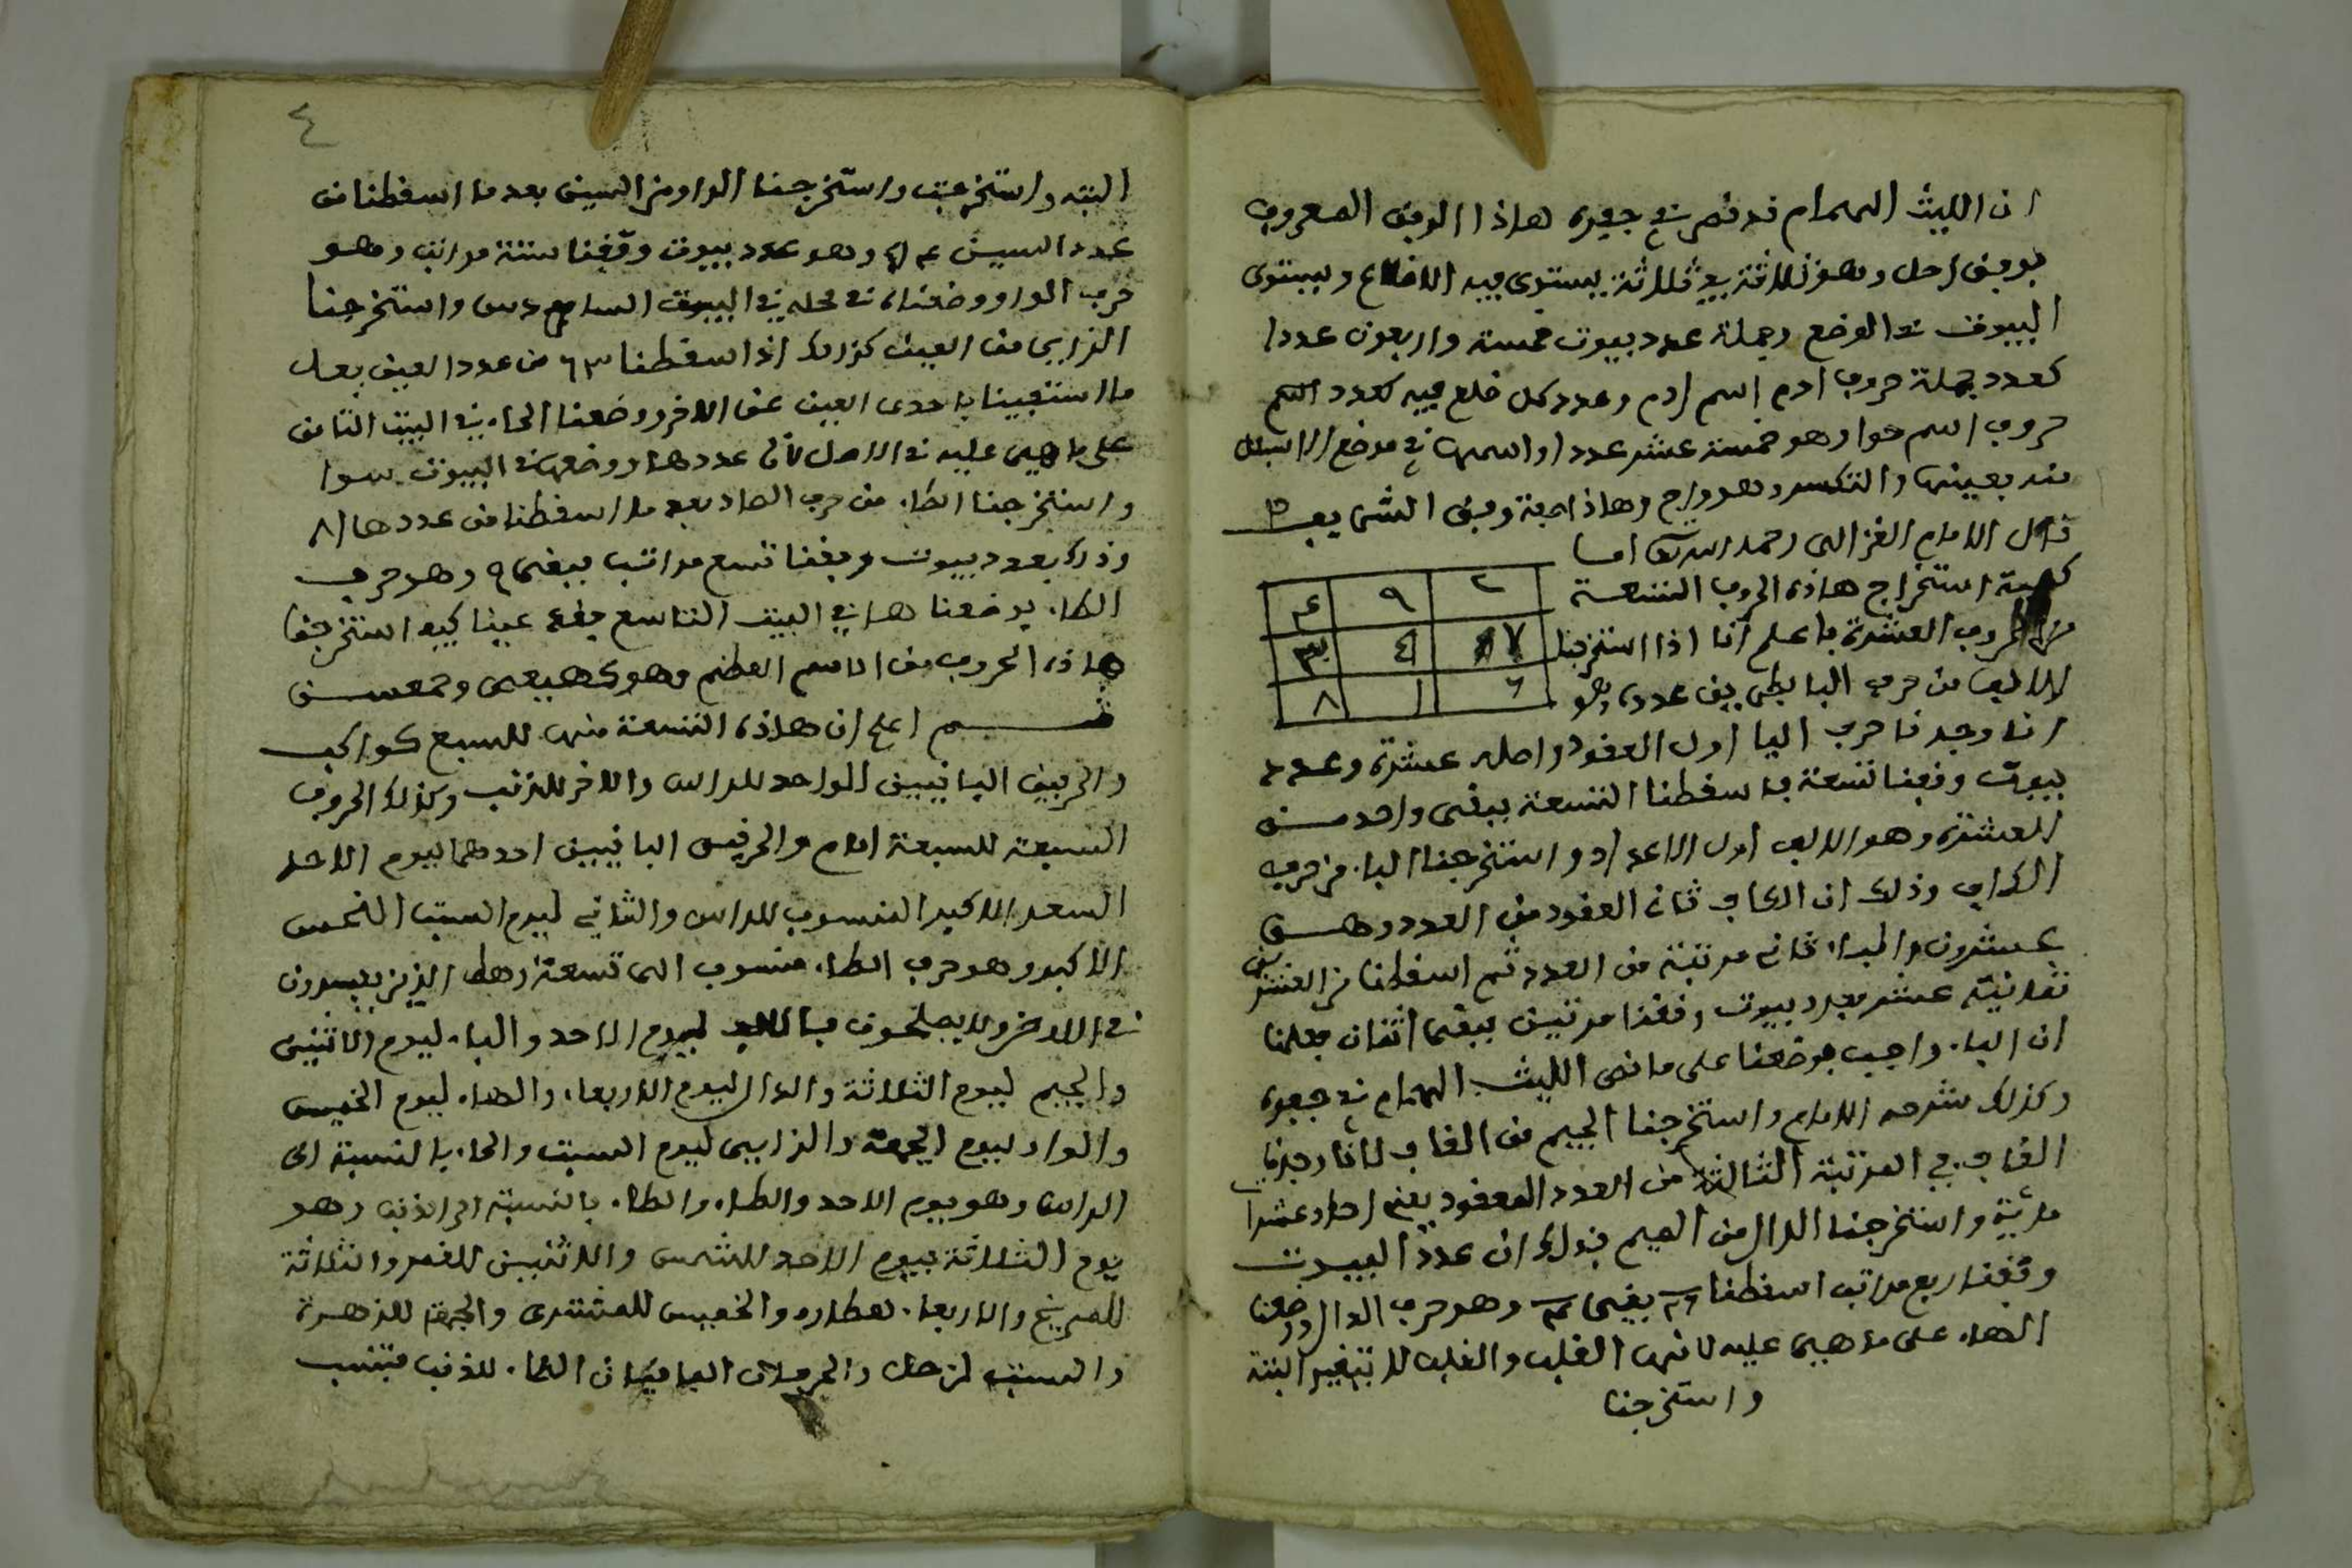 ان الليث الهمام قد نص في جفره هاذا الوفق المعروف
بوفق زحل وهو ثلاثة في ثلاثة يستوى فيه الاضلاع ويستوى
البيوت في الوضع وجملة عدد بيوت خمسة واربعون عددا
كعدد جملة حروف ادم اسم ادم وعدد كل ضلع فيه كعدد اسم
حروف اسم حوا وهو خمسة عشر عددا واسمها في موضع
منه بعينها والتكسير وهو وهاذا صفة وفق الشريف
قال الامام الغزالى رحمه الله اما
كيفية استخراج هاذه الحروف التسعة
من الحروف العشرة فاعلم انا اذا استخرجنا
٢ ٩ ٤
٧ ٥ ٣
٦ ١ ٨
الالف من حرف اليا بطريق عدده وهو
انا وجدنا حرف اليا اول العقود واصله عشرة وعدد
بيوت وفقنا تسعة فاسقطنا التسعة يبقى واحد من
العشرة وهو الالف اول الاعداد واستخرجنا الباء من حرف
الكاف وذلك ان الكاف ثان العقود من العدد وهى
عشرون والباء ثانى مرتبة من العدد ثم اسقطنا من العشرين
ثمانية عشر عدد بيوت وفقنا مرتين يبقى اثنان فعلمنا
ان الباء واجب فوضعنا على ما نص الليث الهمام في جفره
وكذلك شرحه الامام واستخرجنا الجيم من القاف لانا وجدنا
القاف في المرتبة الثالثة من العدد المعقود يعنى احاد عشرات
مائة واستخرجنا الدال من الميم فذلك ان عدد البيوت
وفقنا اربع مراتب اسقطنا ٣٦ يبقى ٤ وهو حرف الدال ووضعنا
الهاء على ما هى عليه لانها القلب والقلب لا يتغير البتة
واستخرجنا
٤
البتة واستخرجت واستخرجنا الواو من السين بعد ما اسقطنا من
عدد السين ٥٤ وهو عدد بيوت وفقنا ستة مراتب وهو
حرف الواو ووضعناه في محله في البيوت السادس واستخرجنا
الزاى من العين كذلك اذا اسقطنا ٦٣ من عدد العين بعد
ما استغنينا باحدى العين عن الاخر ووضعنا الحاء في البيت الثامن
على ما هى عليه في الاصل لان عددها ووضعها في البيوت سوا
واستخرجنا الطاء من حرف الصاد بعد ما اسقطنا من عددها ٨١
وذلك بعدد بيوت وفقنا تسع مراتب يبقى ٩ وهو حرف
الطاء فوضعنا ها في البيت التاسع فقد عينا كيف استخرجنا
هاذه الحروف من الاسم العظيم وهو كهيعص وحمعسق
قسم اعلم ان هاذه التسعة منها للسبع كواكب
والحرفين الباقيين الواحد للراس والاخر للذنب وكذلك الحروف
السبعة للسبعة ايام والحرفين الباقيين احدهما ليوم الاحد
السعد الاكبر المنسوب للراس والثانى ليوم السبت النحس
الاكبر وهو حرف الطاء منسوب الى تسعة رهط الذين يفسدون
في الارض ولا يصلحون فالالف ليوم الاحد والباء ليوم الاثنين
والجيم ليوم الثلاثة والدال ليوم الاربعاء والهاء ليوم الخميس
والواو ليوم الجمعة والزاى ليوم السبت والحاء بالنسبة الى
الراس وهو يوم الاحد والطاء والطاء بالنسبة الى الذنب وهو
يوم الثلاثة فيوم الاحد للشمس والاثنين للقمر والثلاثة
للمريخ والاربعاء لعطارد والخميس للمشترى والجمعة للزهرة
والسبت لزحل والحرفان الباقيان الطاء للذنب فتنسب